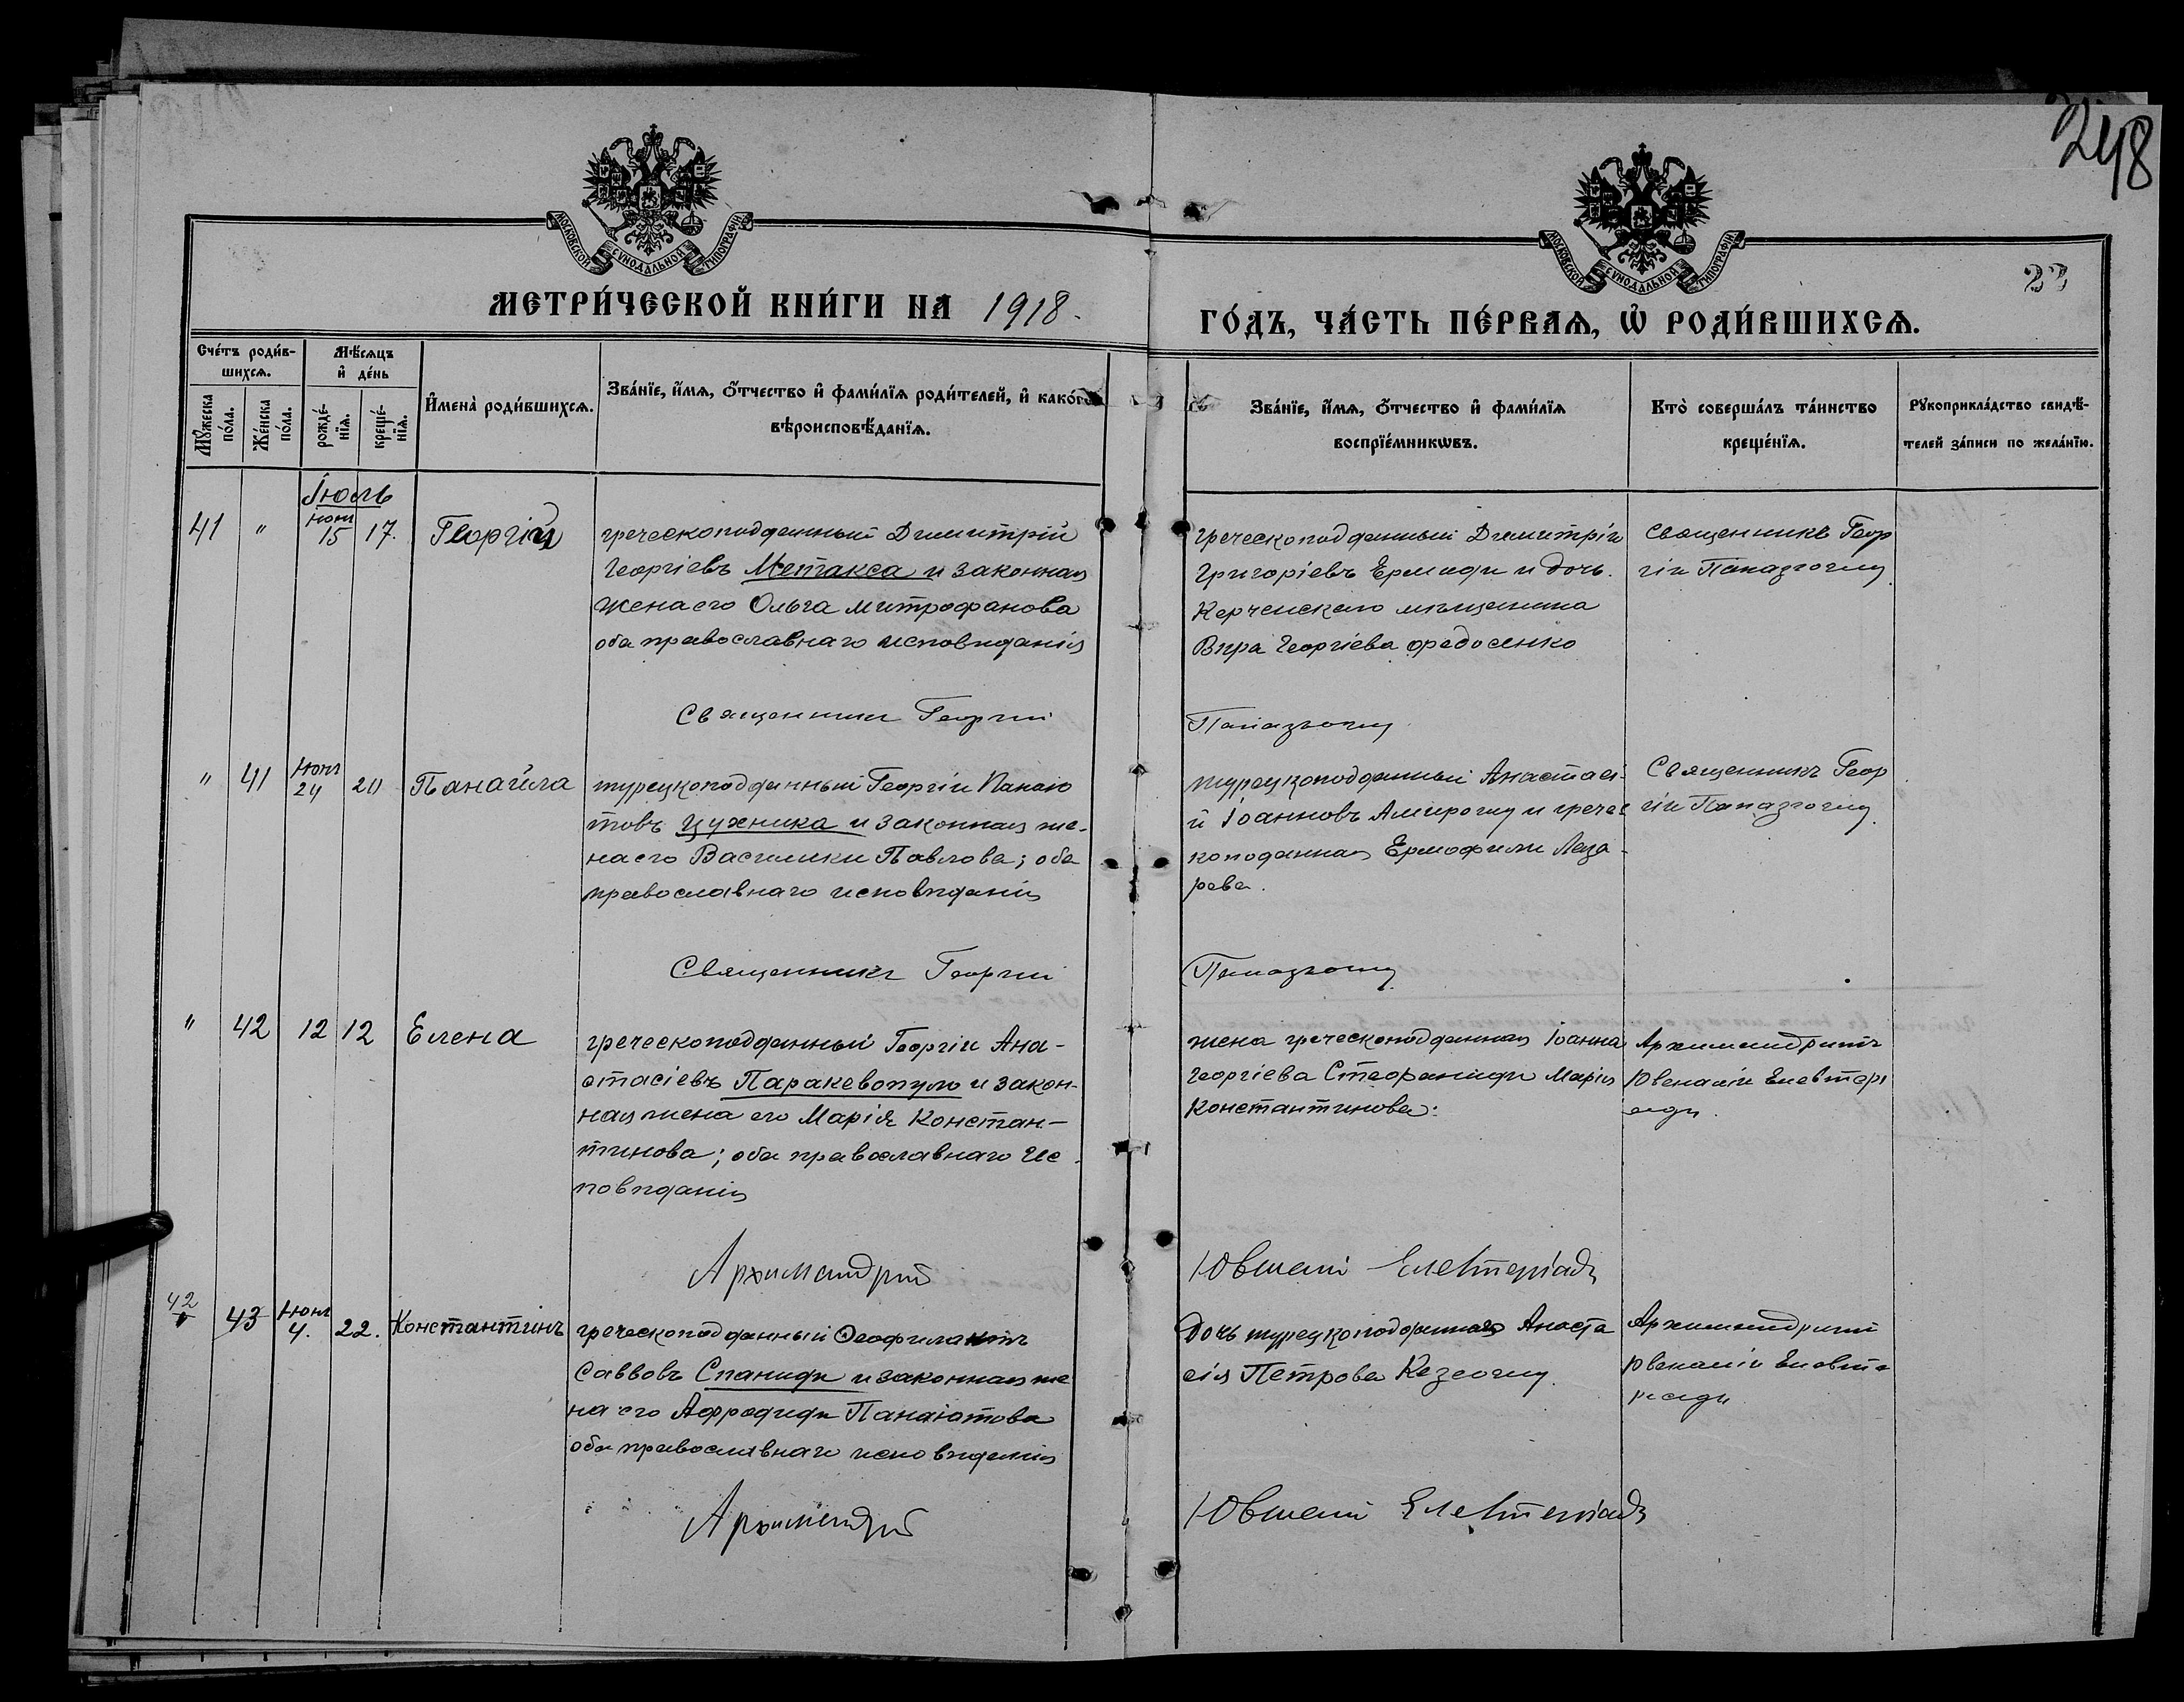 248
МОСКОВСКОЙ СѴНОДАЛЬНОЙ ТИПОГРАФІИ
МОСКОВСКОЙ СѴНОДАЛЬНОЙ ТИПОГРАФІИ
23
МЕТРИ́ЧЕСКОЙ КНИ́ГИ НА 1918.
ГО́ДЪ, ЧА́СТЬ ПЕ́РВАѦ, Ѡ҆ РОДИ́ВШИХСѦ.
Сче́тъ роди́в-
шихсѧ.
Мѣ́сѧцъ
и҆ де́нь
Мꙋ́жеска по́ла.
Же́нска по́ла.
рожде́-
нїѧ.
креще́-
нїѧ.
И҆мена̀ роди́вшихсѧ.
Зва́нїе, и҆́мѧ, ѻ҆́тчество и҆ фами́лїѧ роди́телей, и҆ како́гѡ
вѣроисповѣ́данїѧ.
Зва́нїе, и҆́мѧ, ѻ҆́тчество и҆ фами́лїѧ
воспрїе́мникѡвъ.
Кто̀ соверша́лъ та́инство
креще́нїѧ.
Рꙋкоприкла́дство свидѣ́-
телей за́писи по жела́нїю.
Іюль
41 " Іюнь 15 17. Георгій
греческоподданный Димитрій
Георгіевъ Метакса и законная
жена его Ольга Митрофанова
оба православнаго исповѣданія
греческоподданный Димитрій
Григоріевъ Ермиди и дочь
Керченскаго мѣщанина
Вѣра Георгіева Федосенко
Священникъ Геор
гій Папазоглу
Священникъ Георгій Папазогlу
" 41 Іюнь 24 20 Панаіла
турецкоподданный Георгій Панаіо
товъ Цухника и законная же-
на его Василики Павлова; оба
православнаго исповѣданія
турецкоподданный Анастасі-
й Іоанновъ Амироглу и гречес
коподанная Ермофили Лаза-
рева.
Священникъ Геор
гій Папазогlу
Священникъ Георгій Папазогlу
" 42 12 12 Елена
греческоподданный Георгій Ана-
стасіевъ Паракевопуло и закон-
ная жена его Марія Констан-
тинова; оба православнаго Ис-
повѣданія
жена греческоподданная Іоанна
Георгіева Стефаниди Марія
Константинова.
Архимандритъ
Ювеналій Елевтері
ади.
Архимандрит Ювеналій Елевтеріади
42 43 Іюнь 4. 22. Константинъ
греческоподданный Ѳеофилактъ
Саввовъ Спаниди и законная же
на его Афродиди Панаіотова
оба православнаго исповѣданія
дочь турецкоподданнаго Анаста
сія Петрова Кезеоглу.
Архимандрит
Ювеналій Елевте
ріади
Архимандрит Ювеналій Елевтеріади